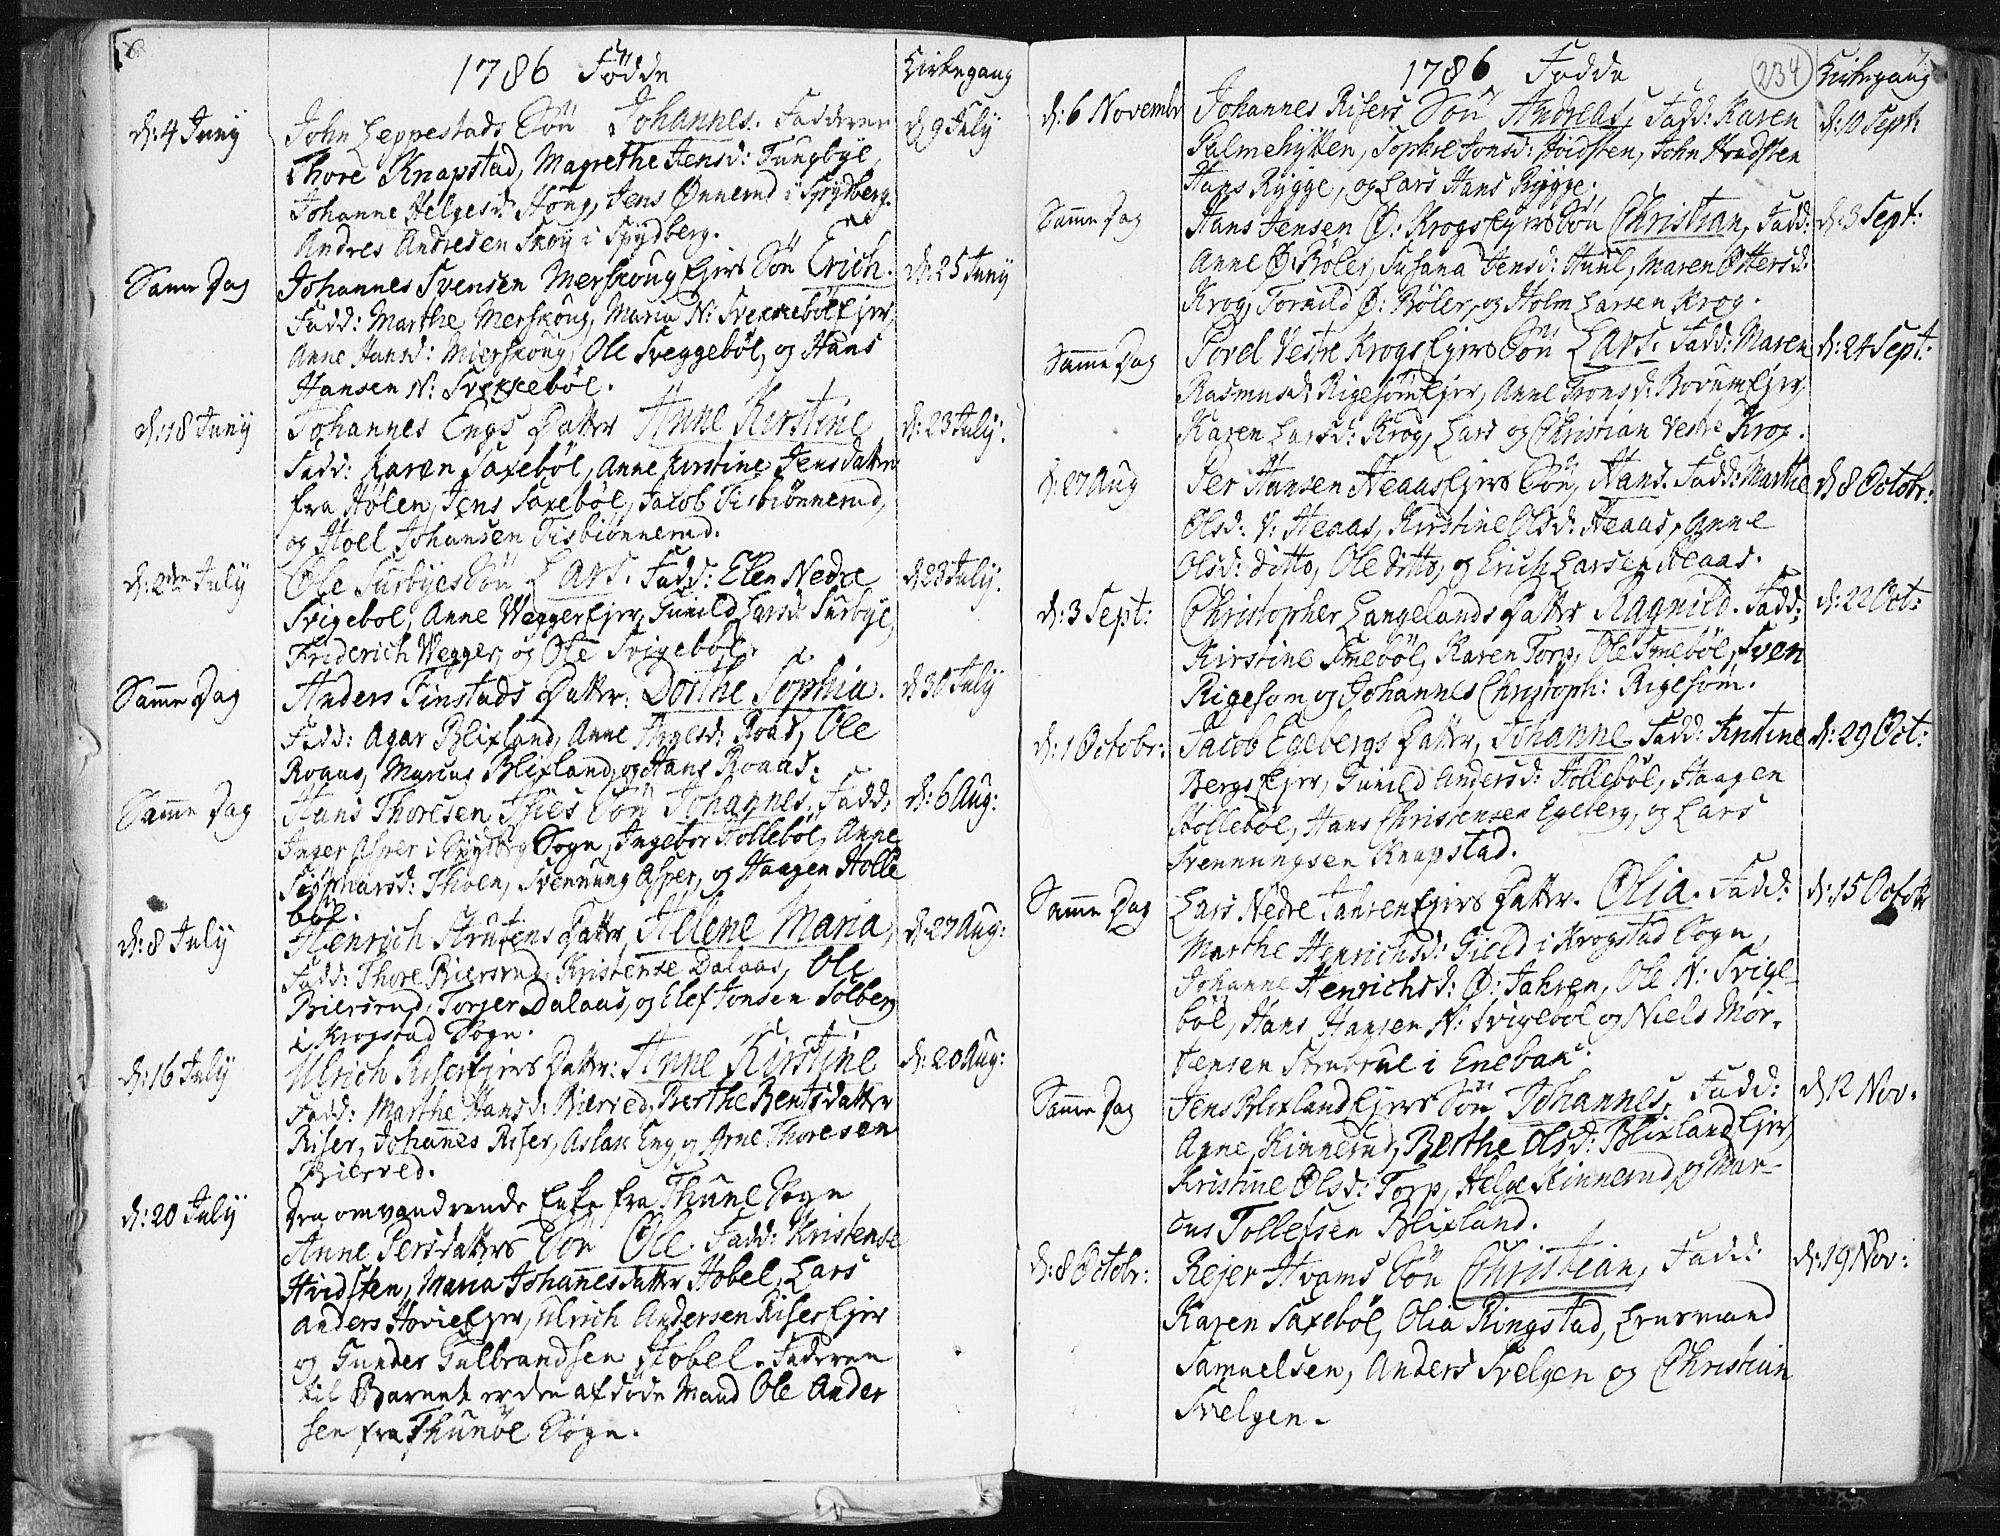 8
1786 Födde
Kirkegang
d: 4 Juny
John Leppestads Sön Johannes. Fadderne
d 9 July
Thore Knapstad, Magrethe Jensd: Tungbye,
Johanne Helgesd: Houg, Jens Ønnerud i Spydberg.
Andres Andresen Skou i Spydberg.
Samme Dag
Johannes Svensen Merskoug Ejers Sön Erich.
d: 25 Juny
Fadd: Marthe Merskoug, Maria N: Svekkeböl Ejer,
Anne Hansd: Mierskoug, Ole Sveggeböl, og Hans
Hansen N: Svekkeböl.
d: 18 Juny
Johannes Engs Datter Anne Kirstine
d: 23 July.
Fadd: Karen Saxeböl, Anne Kirstine Jensdatter
fra Hölen, Jens Saxeböl, Jacob Tisbiönnerud,
og Hoel Johansen Tisbiönnerud.
d: 2den July
Ole Surbyes Sön Lars. Fadd: Elen Nedre
d: 23 July.
Svigebol, Anne Wegger Ejer, Gunild Larsd: Surbye,
Friderich Wegger, og Ole Svigeböl.
Samme Dag
Anders Finstads Datter: Dorthe Sophia.
d: 30 July
Fadd: Agar Blixland, Anne Roas, Ole
Roaas, Marcus Blixland, og Hans Roaas.
Samme Dag
Hans Thoresen Sön Johannes. Fadd:
d: 6 Aug:
Inger Asper i Spydberg Sogn, Ingebor Holleböl, Anne
Thoen, Svennung Asper, og Haagen Holle
böl.
d: 8 July
Henrich Strutens Datter Helene Maria,
d: 27 Aug:
Fadd: Thore Biersrud, Kristense Dalaas, Ole
Biersrud, Torjer Dalaas, og Elef Jonsen Solberg
i Krogstad Sogn.
d: 16 July
Ulrich Riser Ejers Datter: Anne Kirstine
d: 20 Aug:
Fadd: Marthe Hansd: Bierved, Berthe Bentsdatter
Riser, Johannes Riser, Aslak Eng, og Arne Thoresen
Bierved.
d: 20 July
Den omvandrende Enke fra Thune Sogn
Anne Persdatters Sön Ole. Fadd: Kristense
Hvidsten, Maria Johannesdatter Hobel, Lars
Anders Hovie Ejer, Ulrich Andersen Riser Ejer
og Gunder Gulbrandsen Hobel. Faderen
til Barnet er den afdöde Mand Ole Ander
sen fra Thunöe Sogn.
1786 Födde
234
Kirkegang
7.
d: 6 Novembr
Johannes Risers Sön Andreas, Fadd: Karen
d: 10 Sept:
Palmehytten, Sophie Jonsd: Hvidsten, John Hvidsten
Hans Rygge, og Lars Hans Rygge.
Samme Dag
Hans Jensen Ø: Krogs Ejers Sön Christian, Fadd:
d: 3 Sept:
Anne Ø: Böler, Susana Jensd: Huul, Maren Ottersd:
Krog, Tornild Ø: Böler, og Holm Larsen Krog.
Samme Dag
Povel Vestre Krogs Ejers Sön Lars. Fadd: Maren
d: 24 Sept:
Rasmusd: Rigesom Ejer, Anne Tronsd: Bovum Ejer,
Karen Larsd: Krog, Lars og Christian Vestre Krog.
d: 27 Aug
Per Hansen Heaas Ejers Sön, Hans. Fadd: Marthe
d: 8 Octobr:
Olsd: V: Heaas, Kirstine Olsd: Heaas, Anne
Olsd: ditto, Ole ditto, og Erich Larsen Heaas.
d: 3 Sept:
Christopher Langelands Datter Ragnild. Fadd:
d: 22 Oct:
Kirstine Smeböl, Karen Torp, Ole Smeböl, Sven
Rigesom og Johannes Christoph: Rigesom.
d: 1 Octobr:
Jacob Egebergs Datter, Johanne. Fadd: Kristine
d: 29 Oct:
Bergs Ejer, Gunild Andersd: Holleböl, Haagen
Holleböl, Hans Christensen Egeberg, og Lars
Svennungsen Knapstad.
Samme Dag
Lars Nedre Jahren Ejers Datter. Olia. Fadd:
d: 15 Octobr
Marthe Henrichsd: Gield i Krogstad Sogn,
Johanne Henrichsd: Ø: Jahren, Ole N: Svige-
böl, Hans Hansen N: Svigebol og Niels Mor-
tensen i Enebak.
Samme Dag
Jens Blixland Ejers Sön Johannes. Fadd:
d: 12 Nov.
Anne Kinnerud, Berthe Olsd: Blixland Ejer,
Kristine Olsd: Torp, Helge Kinnerud, og Mar-
cus Tollefsen Blixland.
d: 8 Octobr:
Rejer Hvams Sön Christian, Fadd:
d: 19 Nov:
Karen Saxeböl, Olia Ringstad, Ernsmand
Samuelsen, Anders Svelgen og Christian
Svelgen.